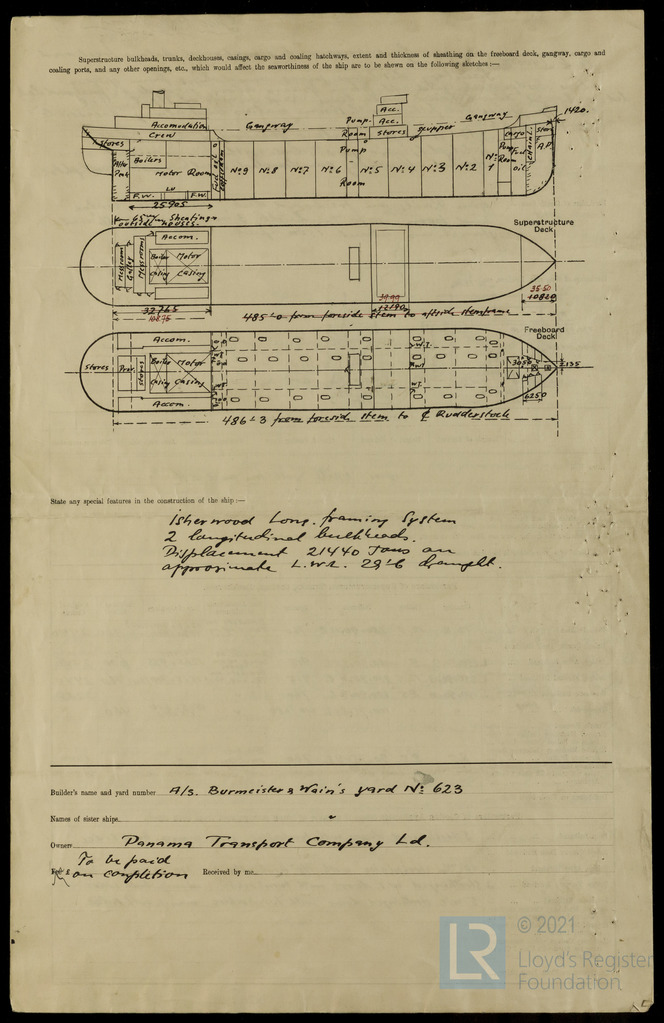 Superstructure bulkheads, trunks, deckhouses, casings, cargo and coaling hatchways, extent and thickness of sheathing on the freeboard deck, gangway, cargo and
coaling ports, and any other openings, etc., which would affect the seaworthiness of the ship are to be shewn on the following sketches:—
1420.
Acc.
Accomodation
Gangway
Pump
Acc.
Gangway
Crew
Room
Stores
Stores
Boilers
Pump
Motor Room
Nº9 Nº8 Nº7 Nº6 Nº5 Nº4 Nº3 Nº2 Nº1
Room
A.P.
F.W. F.W.
25905
outside houses.
Superstructure
Deck
Accom.
Messroom
Galley
Messroom
Boiler Motor
Casing Casing
32765
10875
3999
12190
3550
10820
485'-0 from foreside stem to aftside sternframe
Freeboard
Deck
Accom.
Stores
Prov.
Stores
Boiler Motor
Casing Casing
3050
2135
Accom.
6250
486'-3 from foreside stem to ℄ Rudderstock
State any special features in the construction of the ship:—
Isherwood Long. framing System
2 longitudinal bulkheads.
Displacement 21440 Tons on
approximate L.W.L. 29'6 draught.
Builder's name and yard number A/s. Burmeister & Wain's yard Nº 623
Names of sister ships
Owners Panama Transport Company Ld.
To be paid
on completion Received by me
© 2021
LR
Lloyd's Register
Foundation